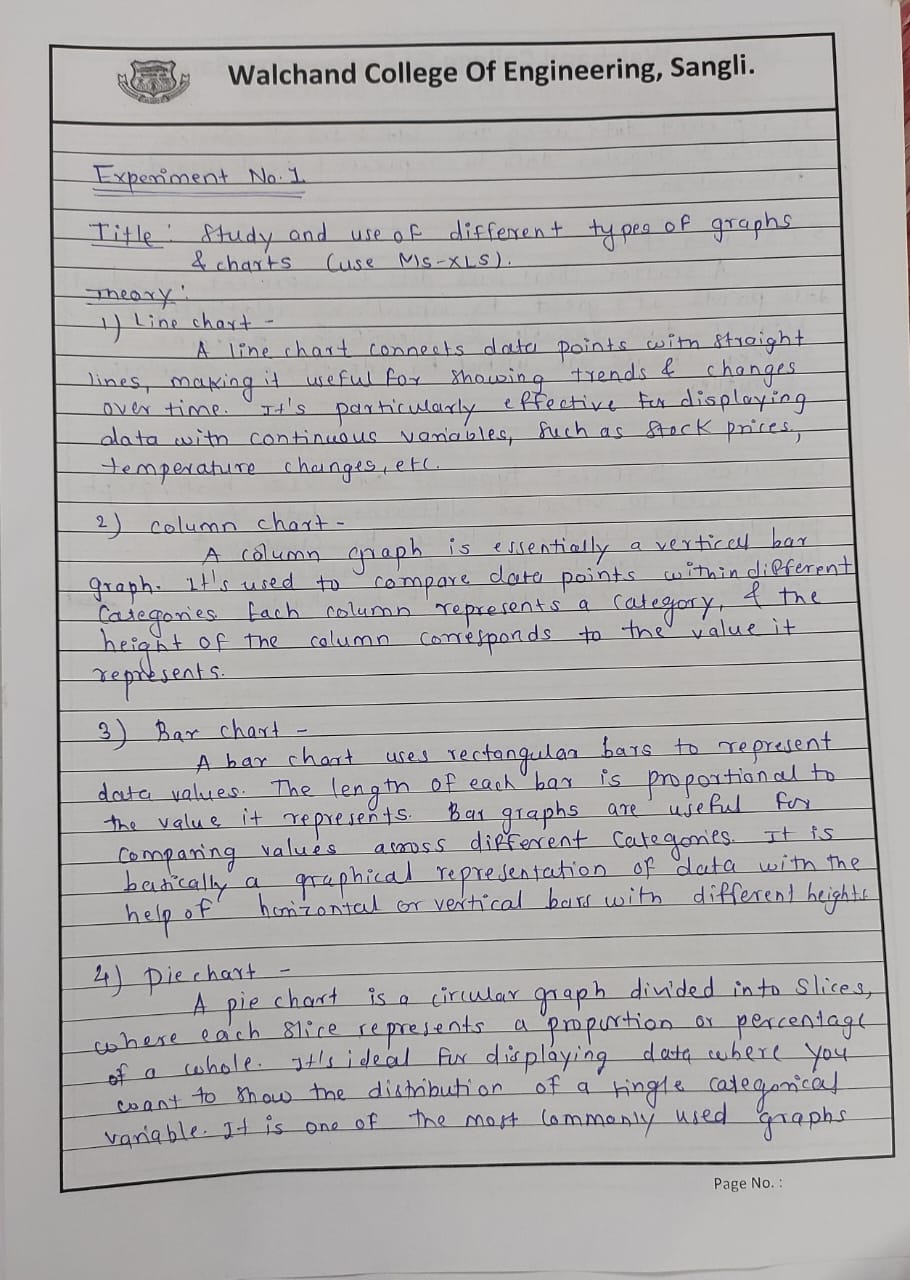 Walchand College Of Engineering, Sangli.
Experiment No. 1
Title : Study and use of different types of graphs
& charts (use MS-XLS).
Theory :
1) Line chart -
A line chart connects data points with straight
lines, making it useful for showing trends & changes
over time. It's particularly effective for displaying
data with continuous variables, such as stock prices,
temperature changes, etc.
2) column chart -
A column graph is essentially a vertical bar
graph. It's used to compare data points within different
Categories. Each column represents a category, & the
height of the column corresponds to the value it
represents.
3) Bar chart -
A bar chart uses rectangular bars to represent
data values. The length of each bar is proportional to
the value it represents. Bar graphs are useful for
comparing values across different Categories. It is
basically a graphical representation of data with the
help of horizontal or vertical bars with different heights
4) Pie chart -
A pie chart is a circular graph divided into slices,
where each slice represents a proportion or percentage
of a whole. It's ideal for displaying data where you
want to show the distribution of a single categorical
variable. It is one of the most commonly used graphs
Page No. :